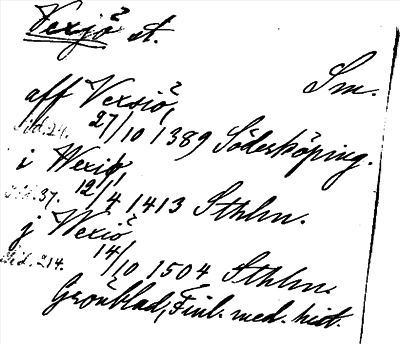 Vexjö st.
Sm.
aff Vexsiö,
Sid. 24. 27/10 1389 Söderköping.
i Wexiö
Sid. 37. 12/4 1413 Sthlm.
j Wexiö
Sid. 214. 14/10 1504 Sthlm.
Grönblad, Finl. med. hist.